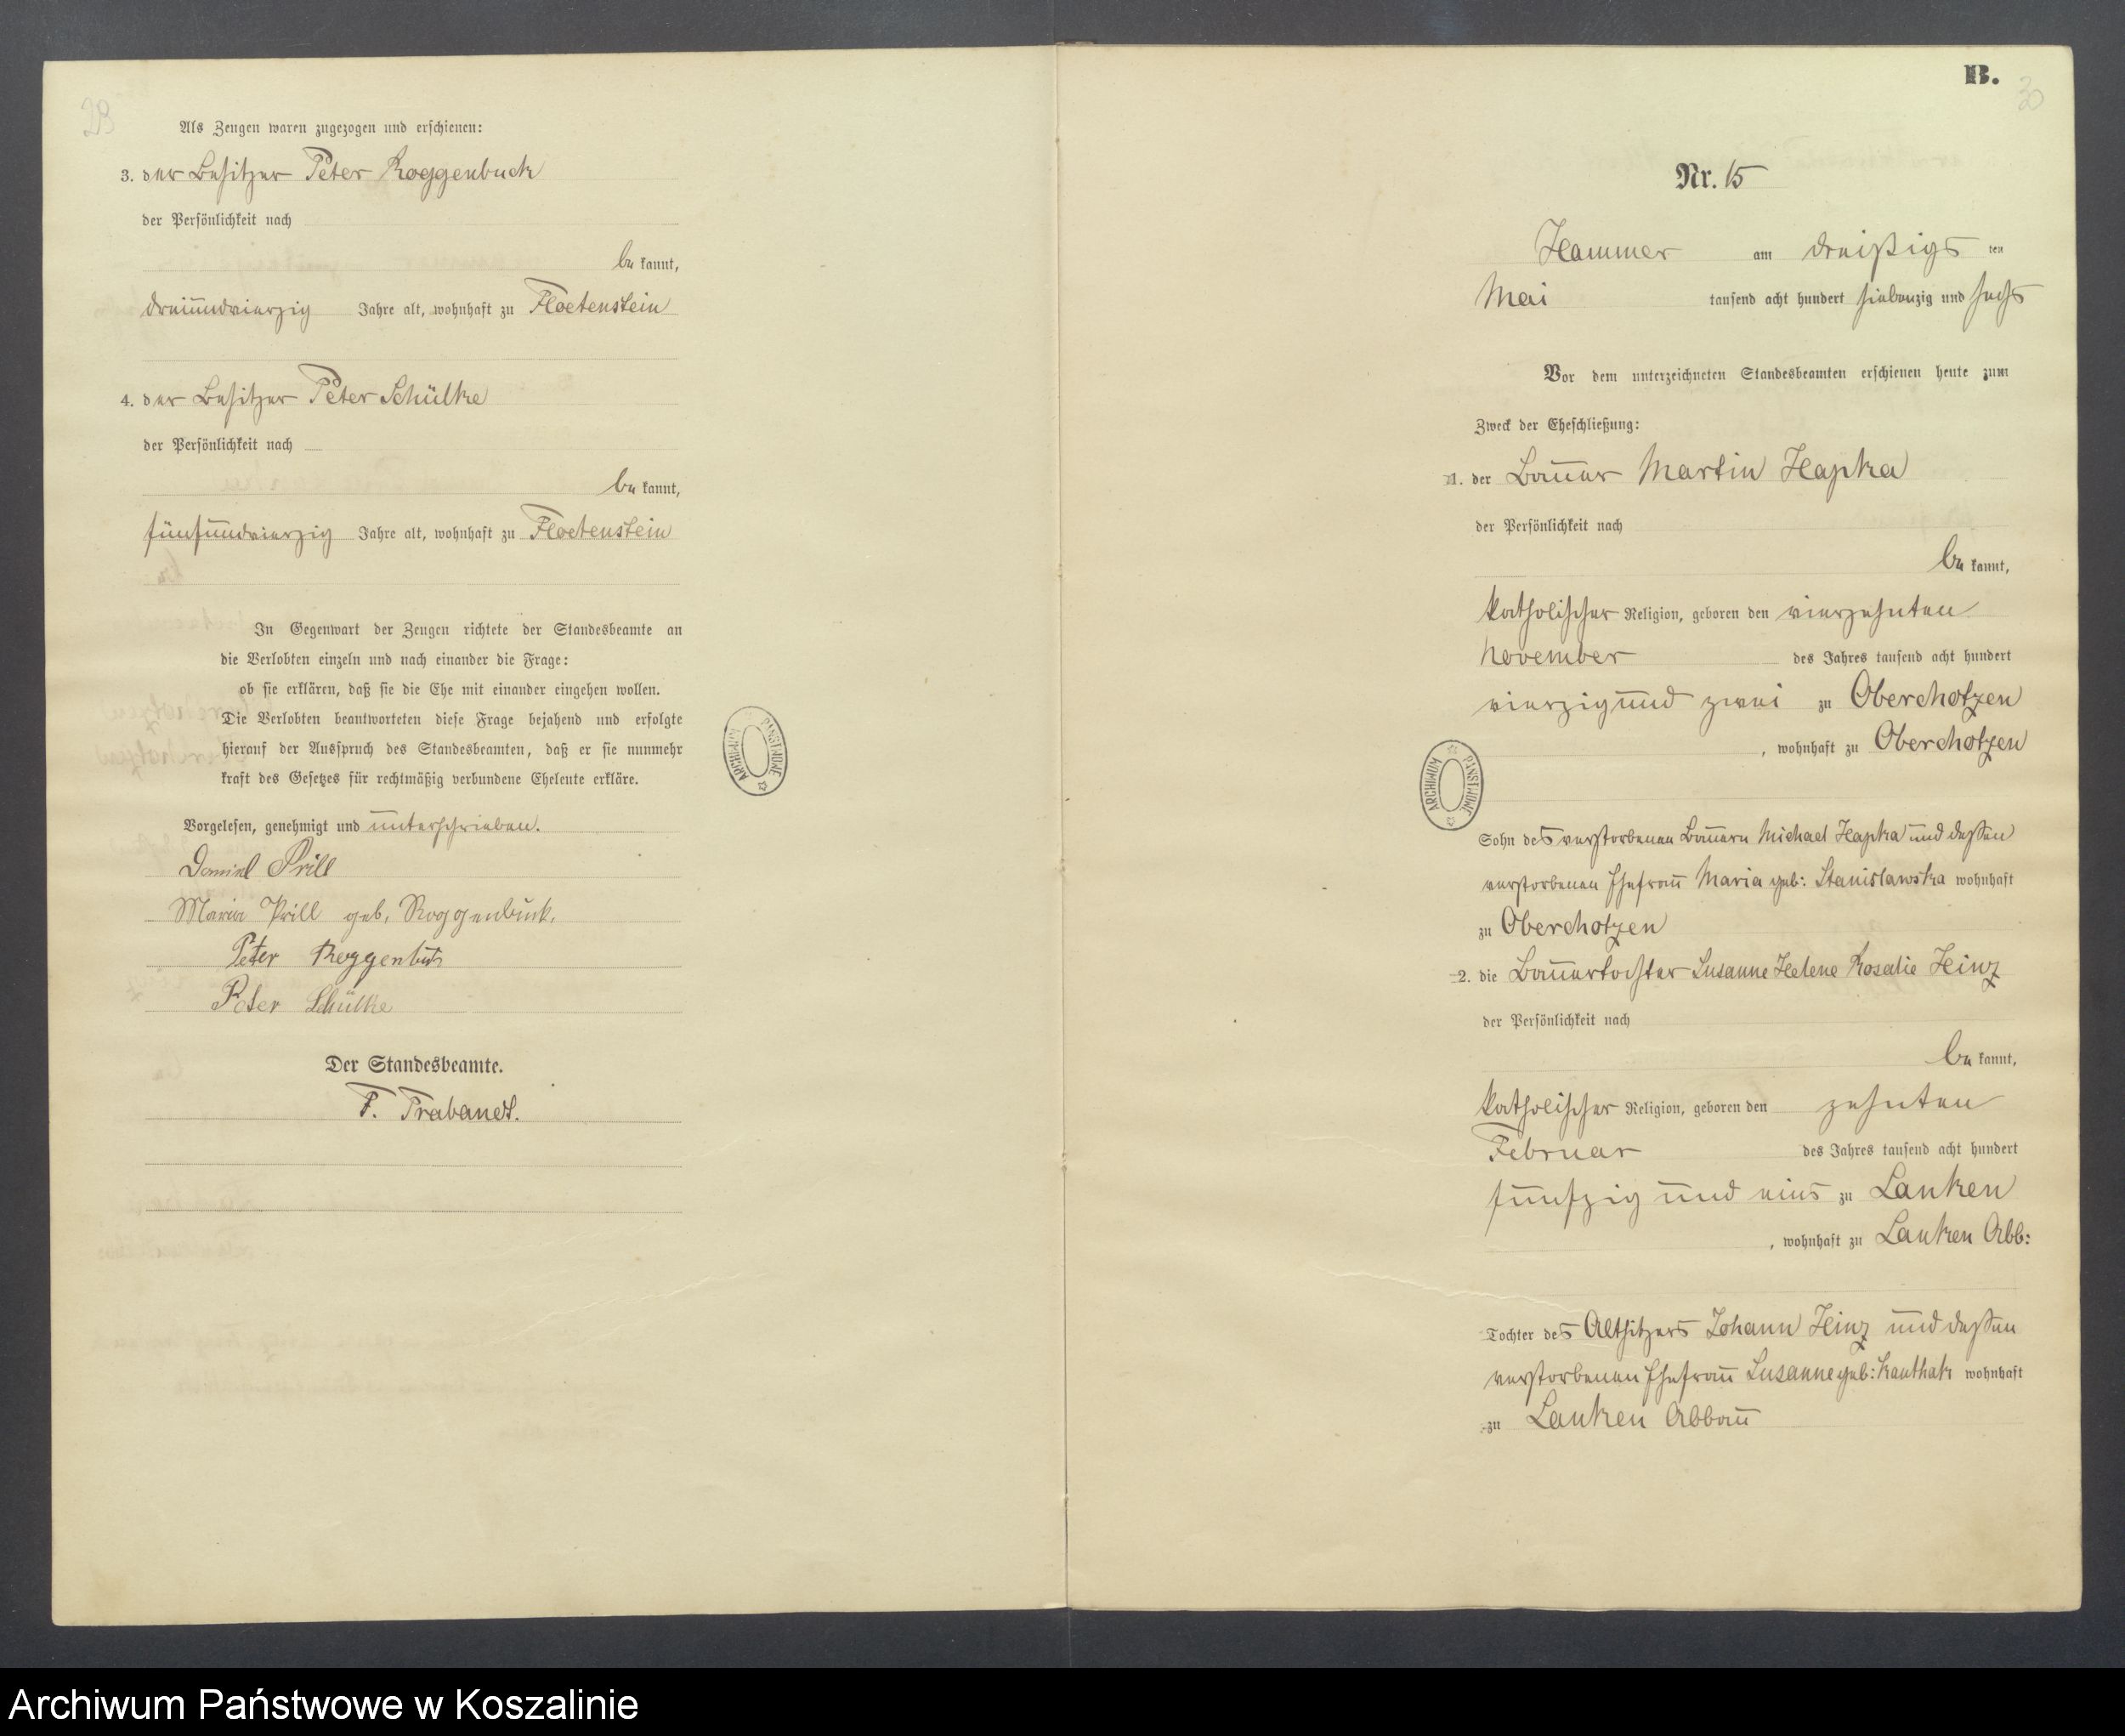 Als Zeugen waren zugezogen und erschienen:
3. der Besitzer Peter Roggenbuck
der Persönlichkeit nach
be kannt,
dreiundvierzig Jahre alt, wohnhaft zu Floetenstein
4. der Besitzer Peter Schülke
der Persönlichkeit nach
be kannt,
fünfundvierzig Jahre alt, wohnhaft zu Floetenstein
In Gegenwart der Zeugen richtete der Standesbeamte an
die Verlobten einzeln und nach einander die Frage:
ob sie erklären, daß sie die Ehe mit einander eingehen wollen.
Die Verlobten beantworteten diese Frage bejahend und erfolgte
hierauf der Ausspruch des Standesbeamten, daß er sie nunmehr
kraft des Gesetzes für rechtmäßig verbundene Eheleute erkläre.
Vorgelesen, genehmigt und unterschrieben.
Prill
Maria Prill geb. Roggenbuck.
Peter Roggenbuck
Peter Schülke
Der Standesbeamte.
F. Prabandt.
ARCHIWUM PAŃSTWOWE
B.
30
Nr. 15
Hammer am dreißigs ten
Mai tausend acht hundert siebenzig und sechs
Vor dem unterzeichneten Standesbeamten erschienen heute zum
Zweck der Eheschließung:
1. der Bauer Martin Hapka
der Persönlichkeit nach
be kannt,
katholischer Religion, geboren den vierzehnten
November des Jahres tausend acht hundert
vierzig und zwei zu Oberchotzen
, wohnhaft zu Oberchotzen
ARCHIWUM PAŃSTWOWE
Sohn des verstorbenen Bauern Michael Hapka und dessen
verstorbenen Ehefrau Maria geb: Stanislawska wohnhaft
zu Oberchotzen
2. die Bauertochter Susanne Helene Rosalie Hinz
der Persönlichkeit nach
be kannt,
katholischer Religion, geboren den zehnten
Februar des Jahres tausend acht hundert
fünfzig und eins zu Lanken
, wohnhaft zu Lanken Abb:
Tochter des Altsitzers Johann Hinz und dessen
verstorbenen Ehefrau Susanne geb: Kauthak wohnhaft
zu Lanken Abbau
Archiwum Państwowe w Koszalinie